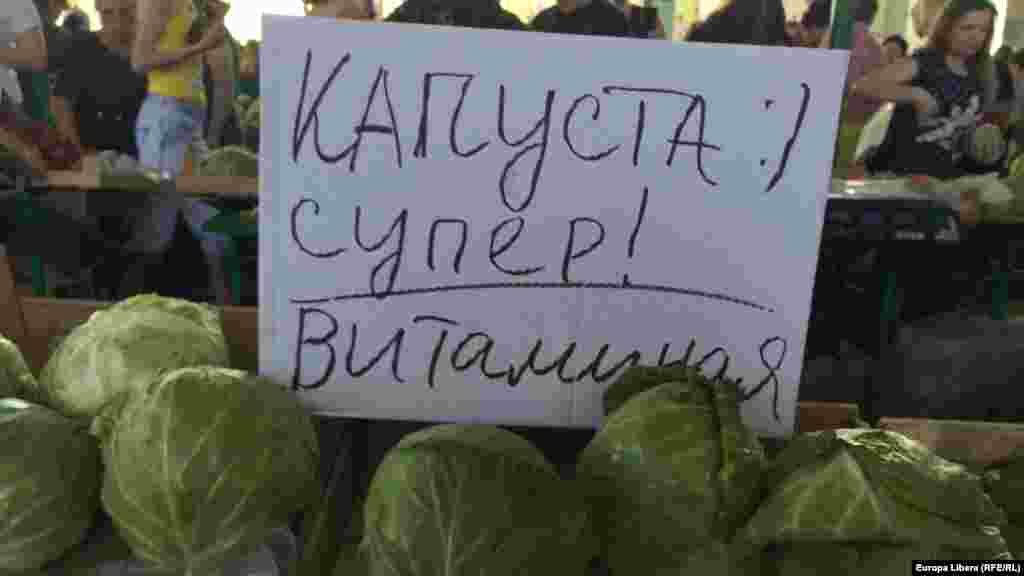 КАПУСТА :)
супер!
Витаминая
Europa Libera (RFE/RL)